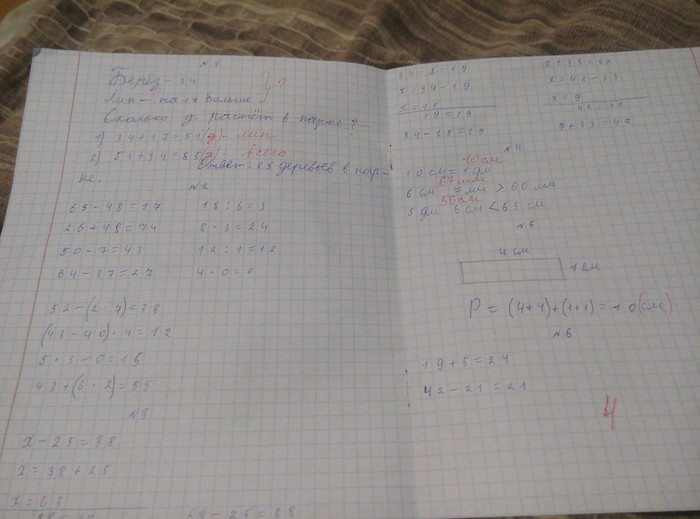 №1
Берёз - 34
Лип - на 17 больше
} ?
Сколько д растёт в парке?
1) 34+17=51(д)- лип
2) 51+34=85(д)- всего
Ответ: 85 деревьев в пар-
ке.
№2
65-48=17 18:6=3
26+48=74 8·3=24
50-7=43 12:1=12
64-37=27 4·0=0
52-(2·7)=38
(43-40)·4=12
5·3-0=15
43+(6·2)=55
№3
x-25=38
x=38+25
x=63
x=34-19
x=15
19=19
34-15=19
x+33=42
x=42-33
x=9
42=42
9+33=42
№4
10см
10см=1дм
67мм
6см 7мм > 60мм
56см
5дм 6см < 65см
№5
4см
1см
P = (4+4)+(1+1)=10(см)
№6
19+5=24
42-21=21
4